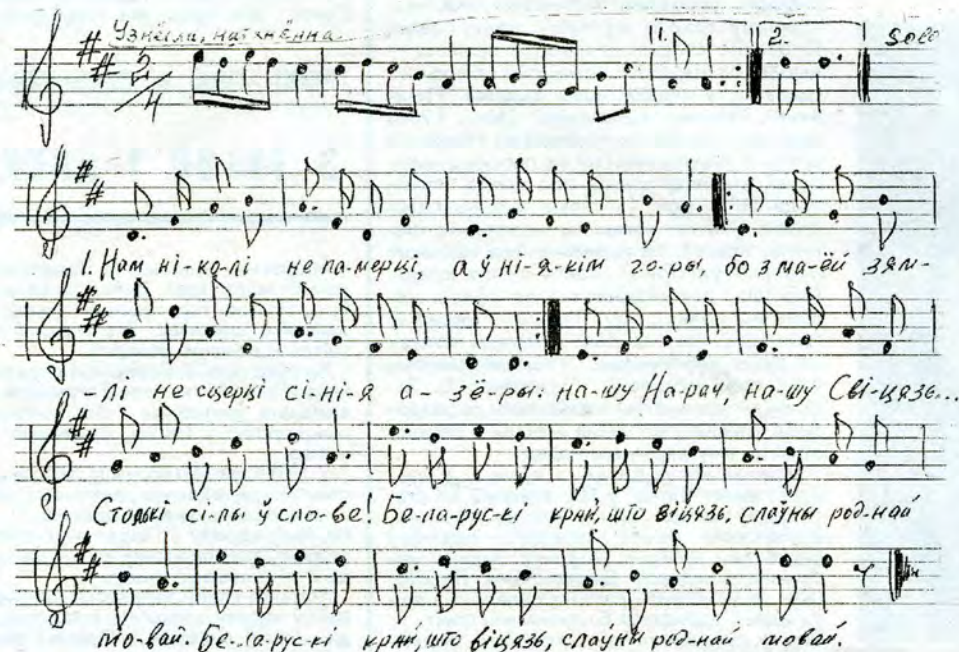 Узнёсла, натхнёна
2/4
1. 2. solo
1. Нам ні-ко-лі не па-мерці, а ў ні-я-кім го-ры, бо з ма-ёй зям-
-лі не сцерці сі-ні-я а-зё-ры: на-шу На-рач, на-шу Сві-цязь...
Столькі сі-лы ў сло-ве! Бе-ла-рус-кі край, што віцязь, слаўны род-най
мо-вай. Бе-ла-рус-кі край, што віцязь, слаўны род-най мовай.